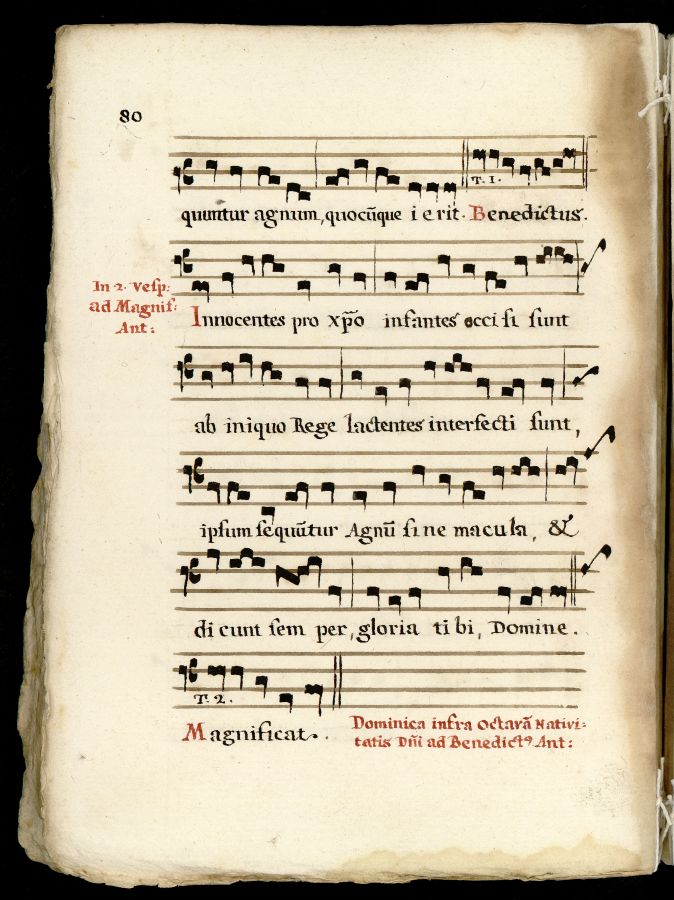 80
T. 1.
quuntur agnum, quocūque ierit. Benedictus.
In 2. Vesp:
ad Magnif:
Ant:
Innocentes pro xp̄o infantes occisi sunt
ab iniquo Rege lactentes interfecti sunt,
ipsum sequūtur Agnū sine macula, &
dicunt semper, gloria tibi, Domine.
T. 2.
Magnificat.
Dominica infra Octavā Nativi-
tatis Dn̄i ad Benedictꝰ Ant: